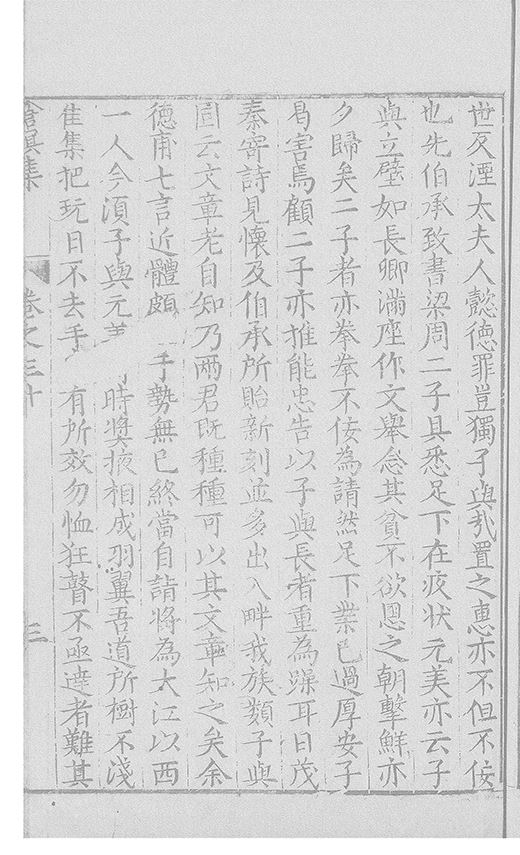 世及湮太夫人懿德罪豈獨子與我置之惠亦不但不佞
也先伯承致書梁周二子具悉足下在疚狀元美亦云子
與立壁如長卿滿座作文舉念其貧不欲恩之朝擊鮮亦
夕歸矣二子者亦拳拳不佞為請然足下業已過厚安子
曷害焉顧二子亦推能忠告以子與長者重為躁耳日茂
秦寄詩見懷及伯承所貽新刻並多出入畔我族類子與
固云文章老自知乃兩君既種種可以其文章知之矣余
德甫七言近體頗手勢無已終當自詣將為大江以西
一人今須子與元美時獎掖相成羽翼吾道所樹不淺
隹集把玩日不去手有所效勿恤狂瞽不亟達者難其
滄溟集 卷之三十 三